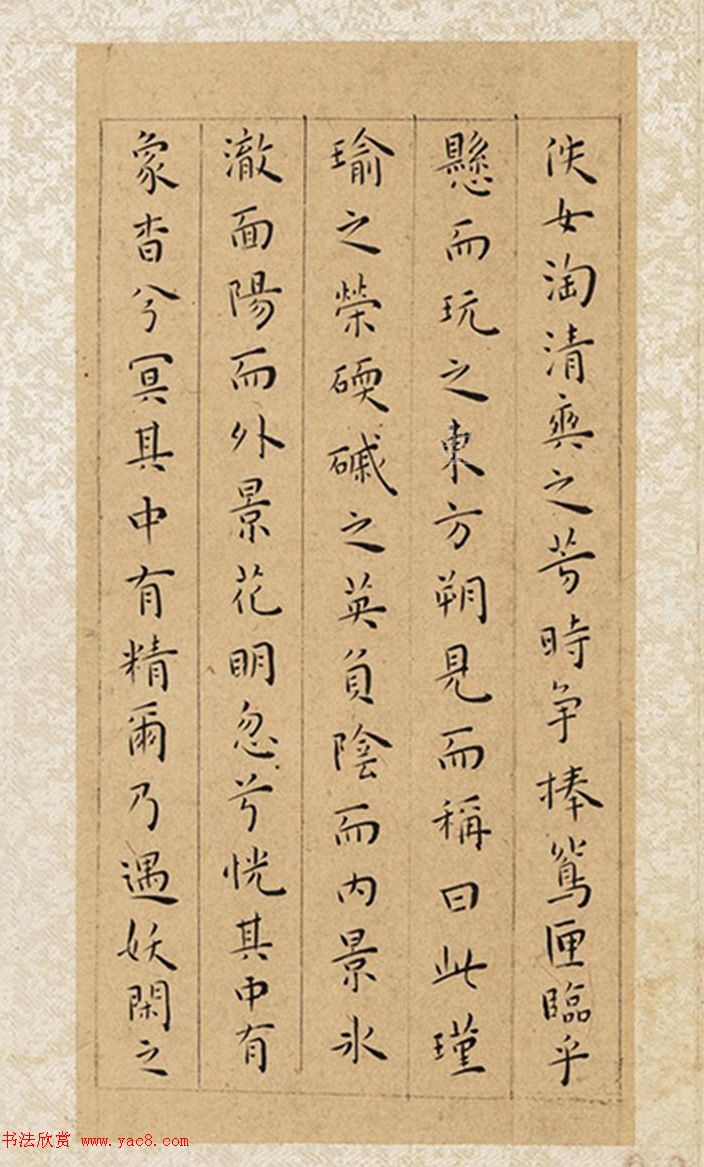 佚女淘清奧之芳時争捧鴛匣臨乎
懸而玩之東方朔見而稱曰此瑾
瑜之榮碝磩之英負陰而內景氷
澈面陽而外景花明忽兮恍其中有
象杳兮冥其中有精爾乃遇妖閑之
书法欣赏 www.yac8.com